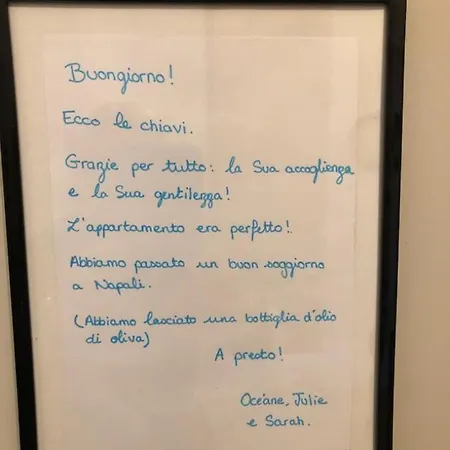 Buongiorno!
Ecco le chiavi.
Grazie per tutto: la Sua accoglienza
e la Sua gentilezza!
L'appartamento era perfetto!
Abbiamo passato un buon soggiorno
a Napali.
(Abbiamo lasciato una bottiglia d'olio
di oliva)
A presto!
Océane, Julie
e Sarah.